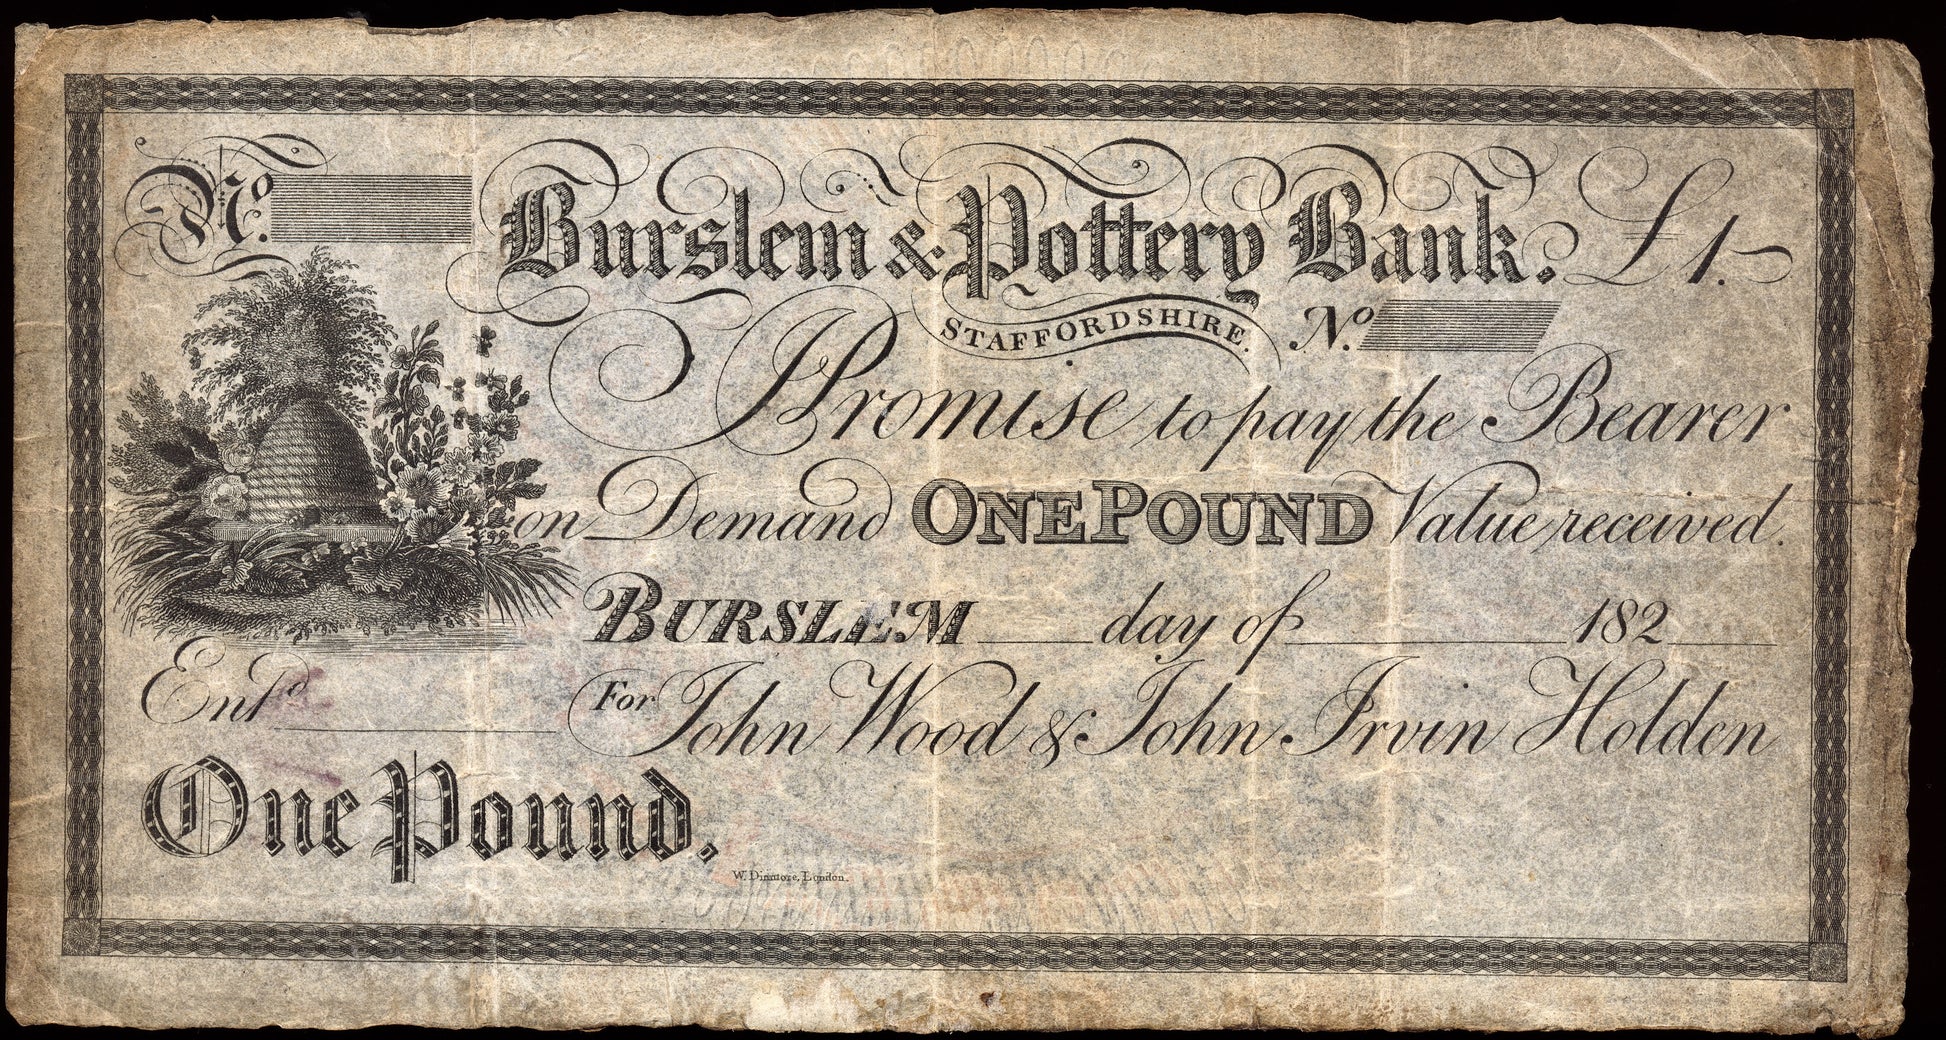 No.
Burslem & Pottery Bank. £1.-
STAFFORDSHIRE. No.
I Promise to pay the Bearer
on Demand ONE POUND Value received.
BURSLEM ____ day of ____ 182__
Entd. ____ For John Wood & John Irvin Holden
One Pound.
W. Dinmore, London.